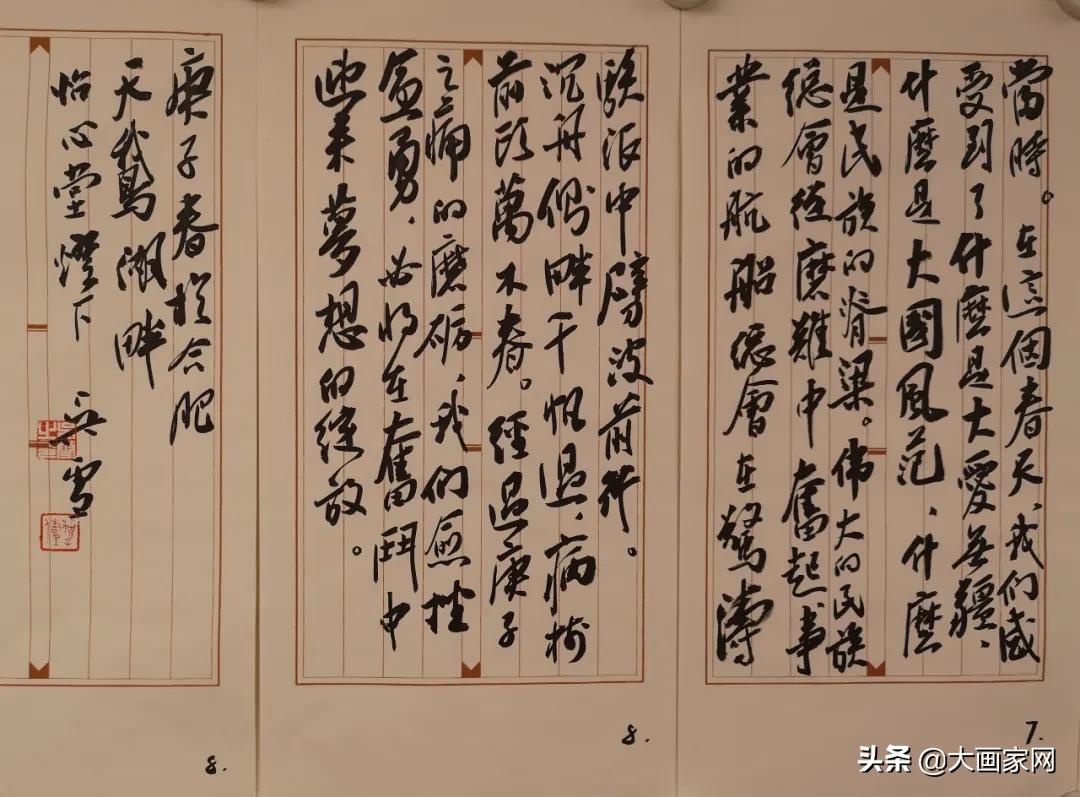 當時。在這個春天，我们感
受到了什麽是大愛無疆、
什麽是大國風范、什麽
是民族的脊梁。偉大的民族
總會經磨難中奮起事
業的航船總會在驚濤
駭浪中劈波前行。
沉舟側畔千帆過，病樹
前頭萬木春。經過庚子
之痛的磨砺，我们愈挫
愈勇，必将在奮鬥中
迎来夢想的绽放。
庚子春於合肥
天鵝湖畔
怡心堂燈下 吴雪
7.
8.
8.
头条 @大画家网